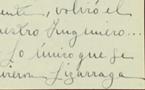 ente, volvió el
uestro Ingeniero...
Lo único que se
irieron Lizarraga